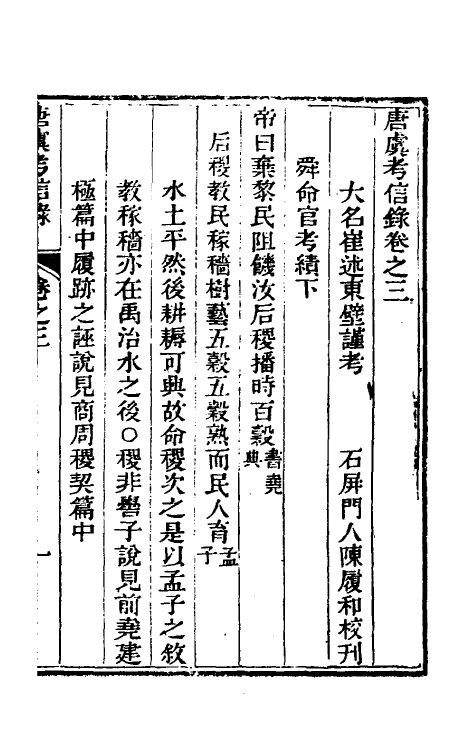 唐虞考信錄卷之三
大名崔述東壁謹考　石屏門人陳履和校刊
舜命官考績下
帝曰棄黎民阻饑汝后稷播時百穀書堯典
后稷教民稼穡樹藝五穀五穀熟而民人育孟子
水土平然後耕耨可興故命稷次之是以孟子之敘
教稼穡亦在禹治水之後○稷非嚳子說見前堯建
極篇中履跡之誣說見商周稷契篇中
唐虞考信錄　卷之三　一